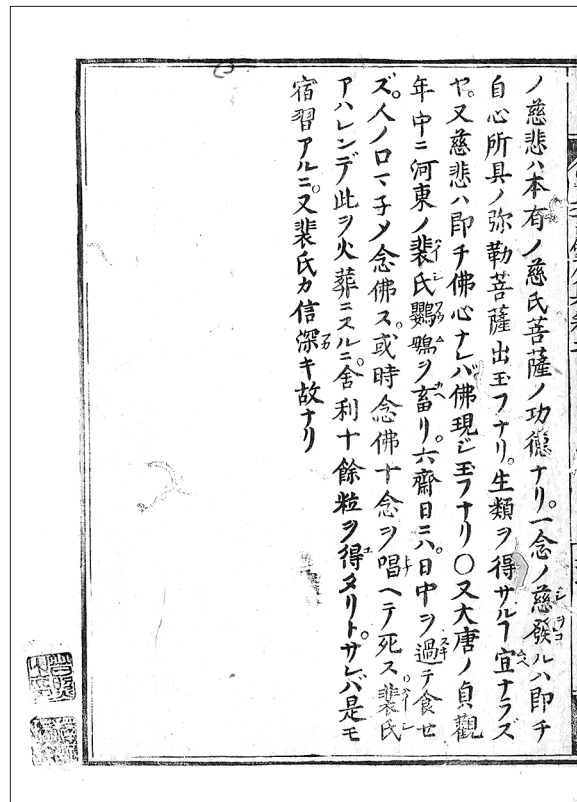 ノ慈悲ハ本有ノ慈氏菩薩ノ功德ナリ。一念ノ慈發ルハ即チ
自心所具ノ弥勒菩薩出玉フナリ。生類ヲ得サルヿ宜ナラズ
ヤ。又慈悲ハ即チ佛心ナレバ佛現ジ玉フナリ〇又大唐ノ貞觀
年中ニ河東ノ裴氏鸚鵡ヲ畜リ。六齋日ニハ。日中ヲ過テ食セ
ズ。人ノ口マ子メ念佛ス。或時念佛十念ヲ唱ヘテ死ス裴氏
アハレンデ此ヲ火葬ニスルニ。舍利十餘粒ヲ得タリト。サレバ是モ
宿習アルニ。又裴氏カ信深キ故ナリ